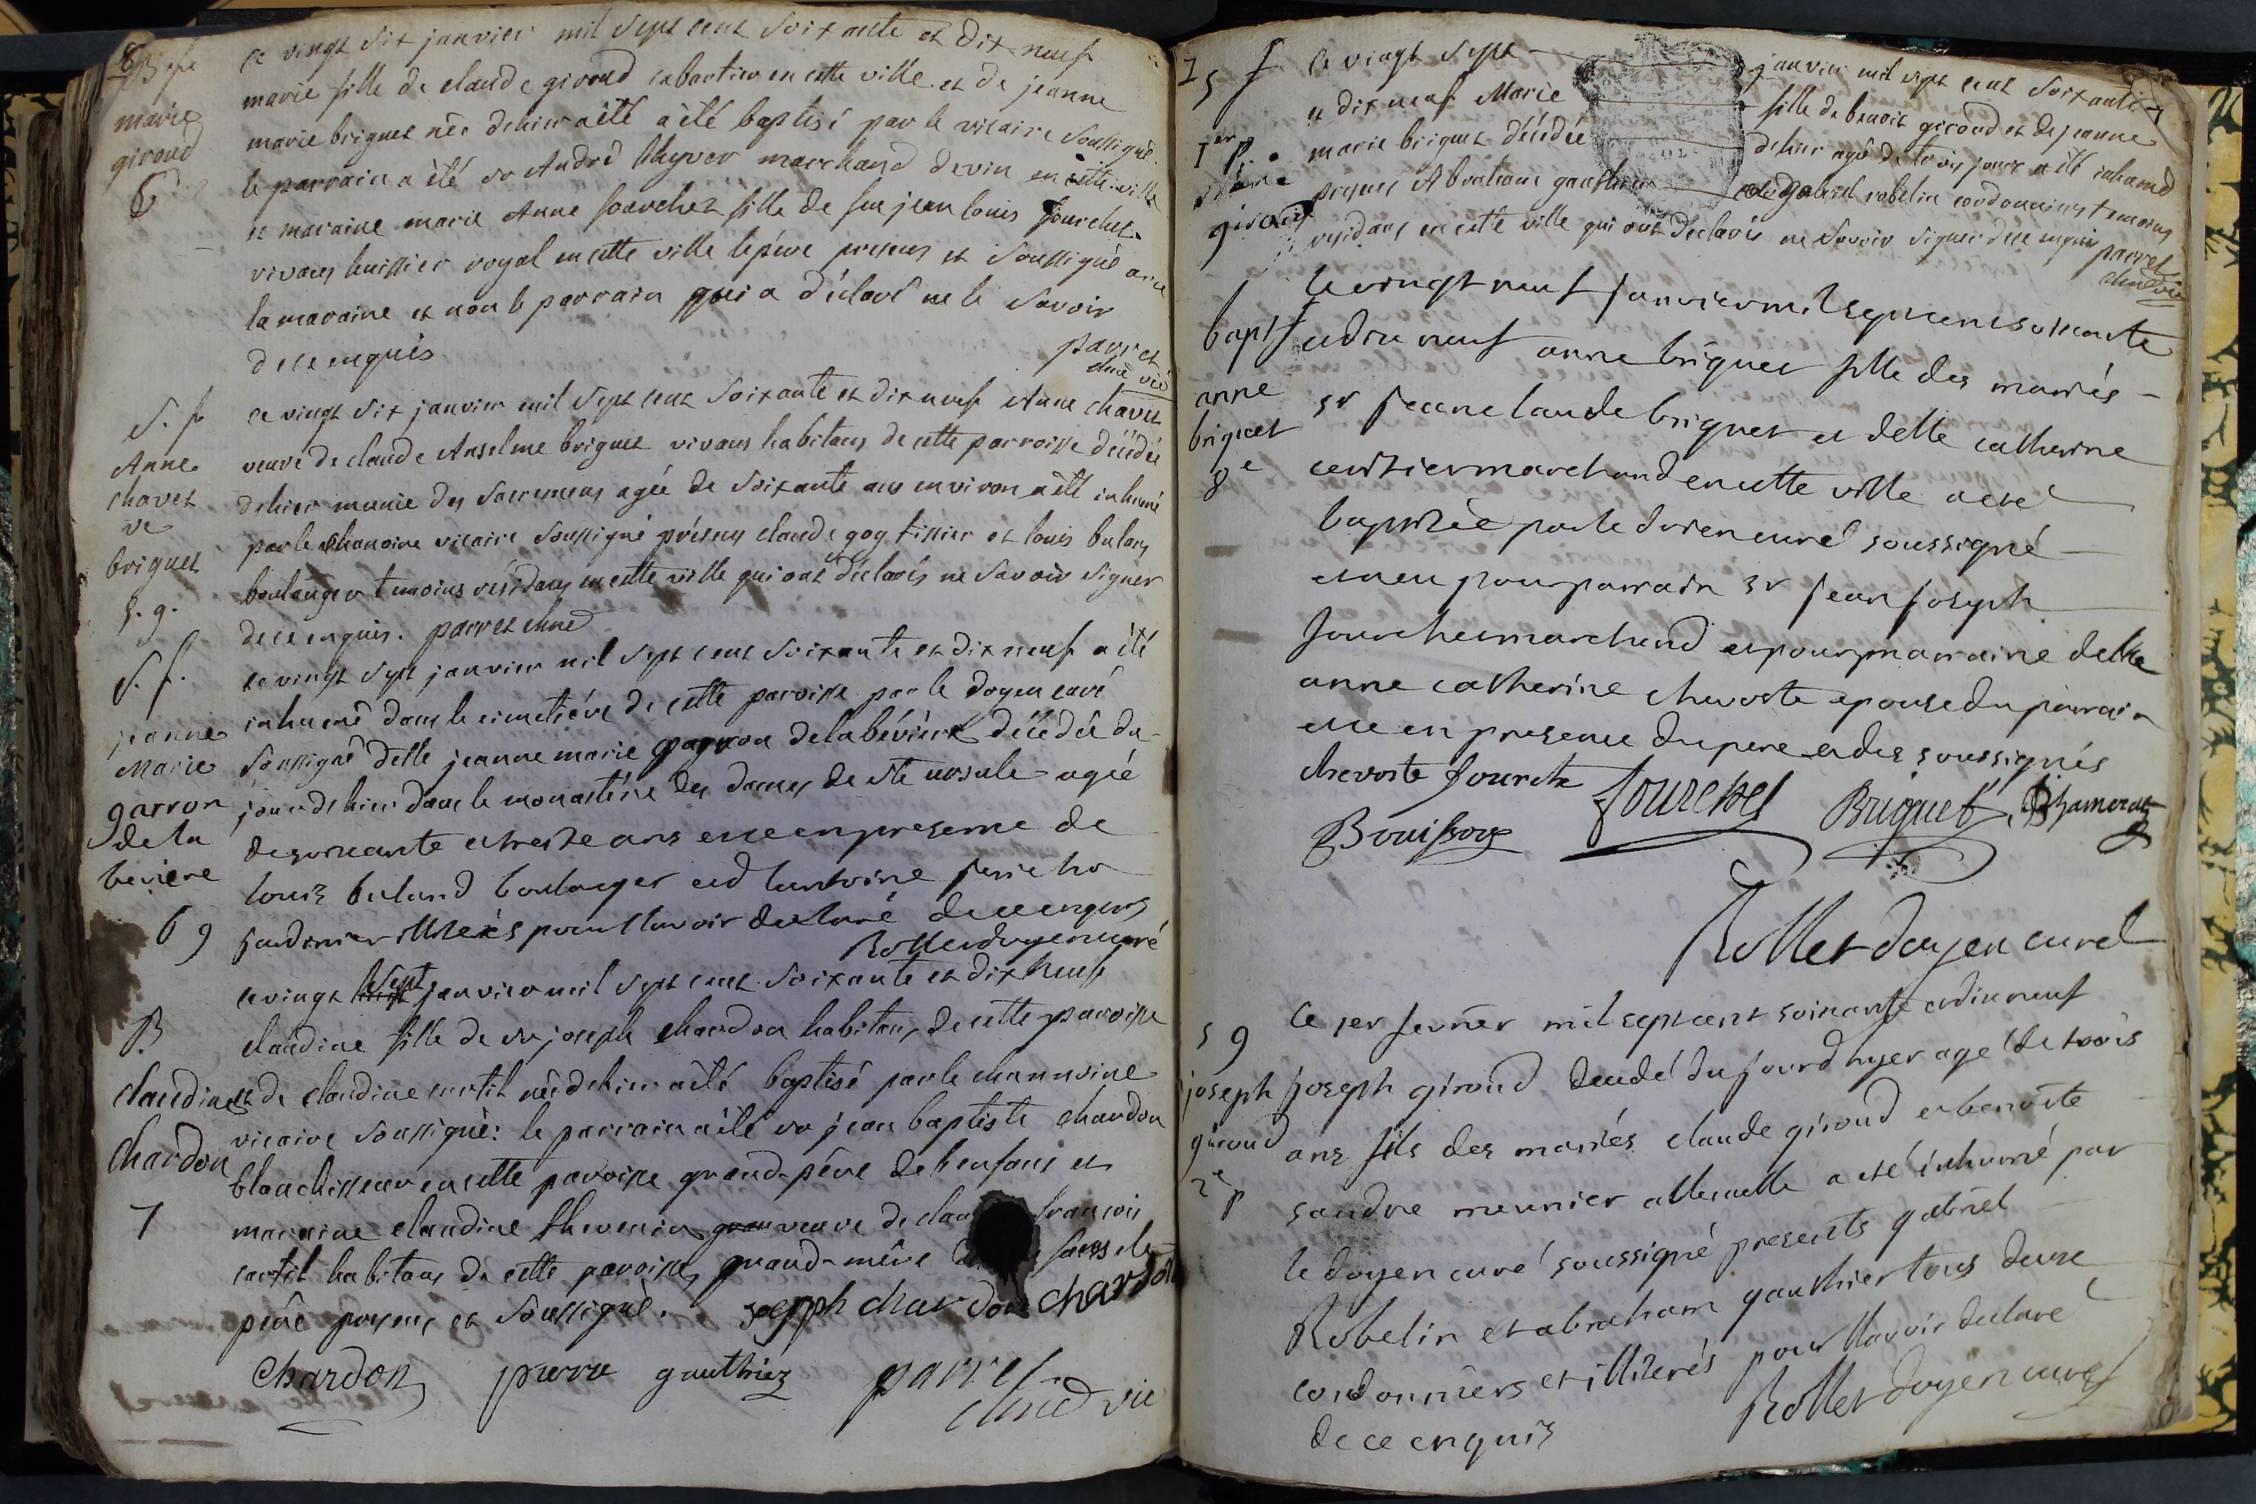 Bapt
marie
giroud
6
ce vingt six janvier mil sept cent soixante et dix neuf
marie fille de claude giroud cabartier en cette ville et de jeanne
marie briguet née dehier a été a été baptisé par le vicaire soussigné
le parrain a été sr André thyver marchand de vin en cette ville
et maraine marie Anne fourchet fille de feu jean louis fourchet
vivant huissier royal en cette ville le pére present et soussigné avec
la maraine et non le parrain qui a déclaré ne le savoir
de ce enquis
parret
chne vic
S. f
Anne
chavet
ve
briguet
5. g.
ce vingt six janvier mil sept cent soixante et dix neuf Anne chavet
veuve de claude Anselme briguet vivant habitant de cette parroisse décédée
dehier munie des sacremens agée de soixante ans environ a été inhumé
par le chanoine vicaire soussigné présens claude goy tissier et louis buland
boulanger temoins résidans en cette ville qui ont déclarés ne savoir signer
de ce enquis. parret chne
S. f.
jeanne
Marie
garron
de la
beviere
6 g
ce vingt sept janvier mil sept cent soixante et dix neuf a été
inhumé dans le cimetiére de cette paroisse par le doyen curé
soussigné delle jeanne marie garron de la béviére décédée du
jour dehier dans le monastére des dames de ste ursule agée
de soixante et treize ans et ce en presence de
louis buland boulanger et d'antoine jericho
jardinier illiterés pour l'avoir declaré de ce enquis
Rollet doyen curé
B.
claudine
chardon
7
ce vingt sept janvier mil sept cent soixante et dix neuf
claudine fille de sr joseph chardon habitant de cette paroisse
et de claudine curtil née dehier a été baptisé par le channoine
vicaire soussigné: le parrain a été sr jean baptiste chardon
blanchisseur en cette paroisse grand-pére de l'enfant et
maraine claudine thevenin veuve de francois
curtil habitant de cette paroisse, grand-mére
pére present et soussigné. joseph chardon chardon
chardon pierre gauthier parret
chne vic
15 f
1er p
marie
giroud
ce vingt sept janvier mil sept cent soixante
et dix neuf Marie fille de benoit giroud et de jeanne
marie briguet décédée dehier agée de trois jours a été inhumé
presens Abraham gauthier et gabriel robelin cordonniers temoins
residans en cette ville qui ont déclarés ne savoir signer de ce enquis parret
chne vic
bapt
anne
briguet
8e
Le vingt neuf janvier mil sept cent soixante
et dix neuf anne briguet fille des mariés
sr jean claude briguet et delle catherine
cerisier marchand en cette ville a eté
baptisée par le doyen curé soussigné
et a eu pour parrain sr jean joseph
fourchet marchand et pour marraine delle
anne catherine chevoste epouse du parrain
et ce en presence du pere et des soussignés
chevoste fourche fourchet Briguet
Bouisson
Rollet doyen curé
5 g
joseph
giroud
2e p
Ce 1er fevrier mil sept cent soixante et dix neuf
joseph giroud decedé du jourd'hyer agé de trois
ans fils des mariés claude giroud et benoîte
sandre meunier a été inhumé par
le doyen curé soussigné presents gabriel
Robelin et abraham gauthier tous deux
cordonniers et illiterés pour l'avoir declaré
de ce enquis
Rollet doyen curé